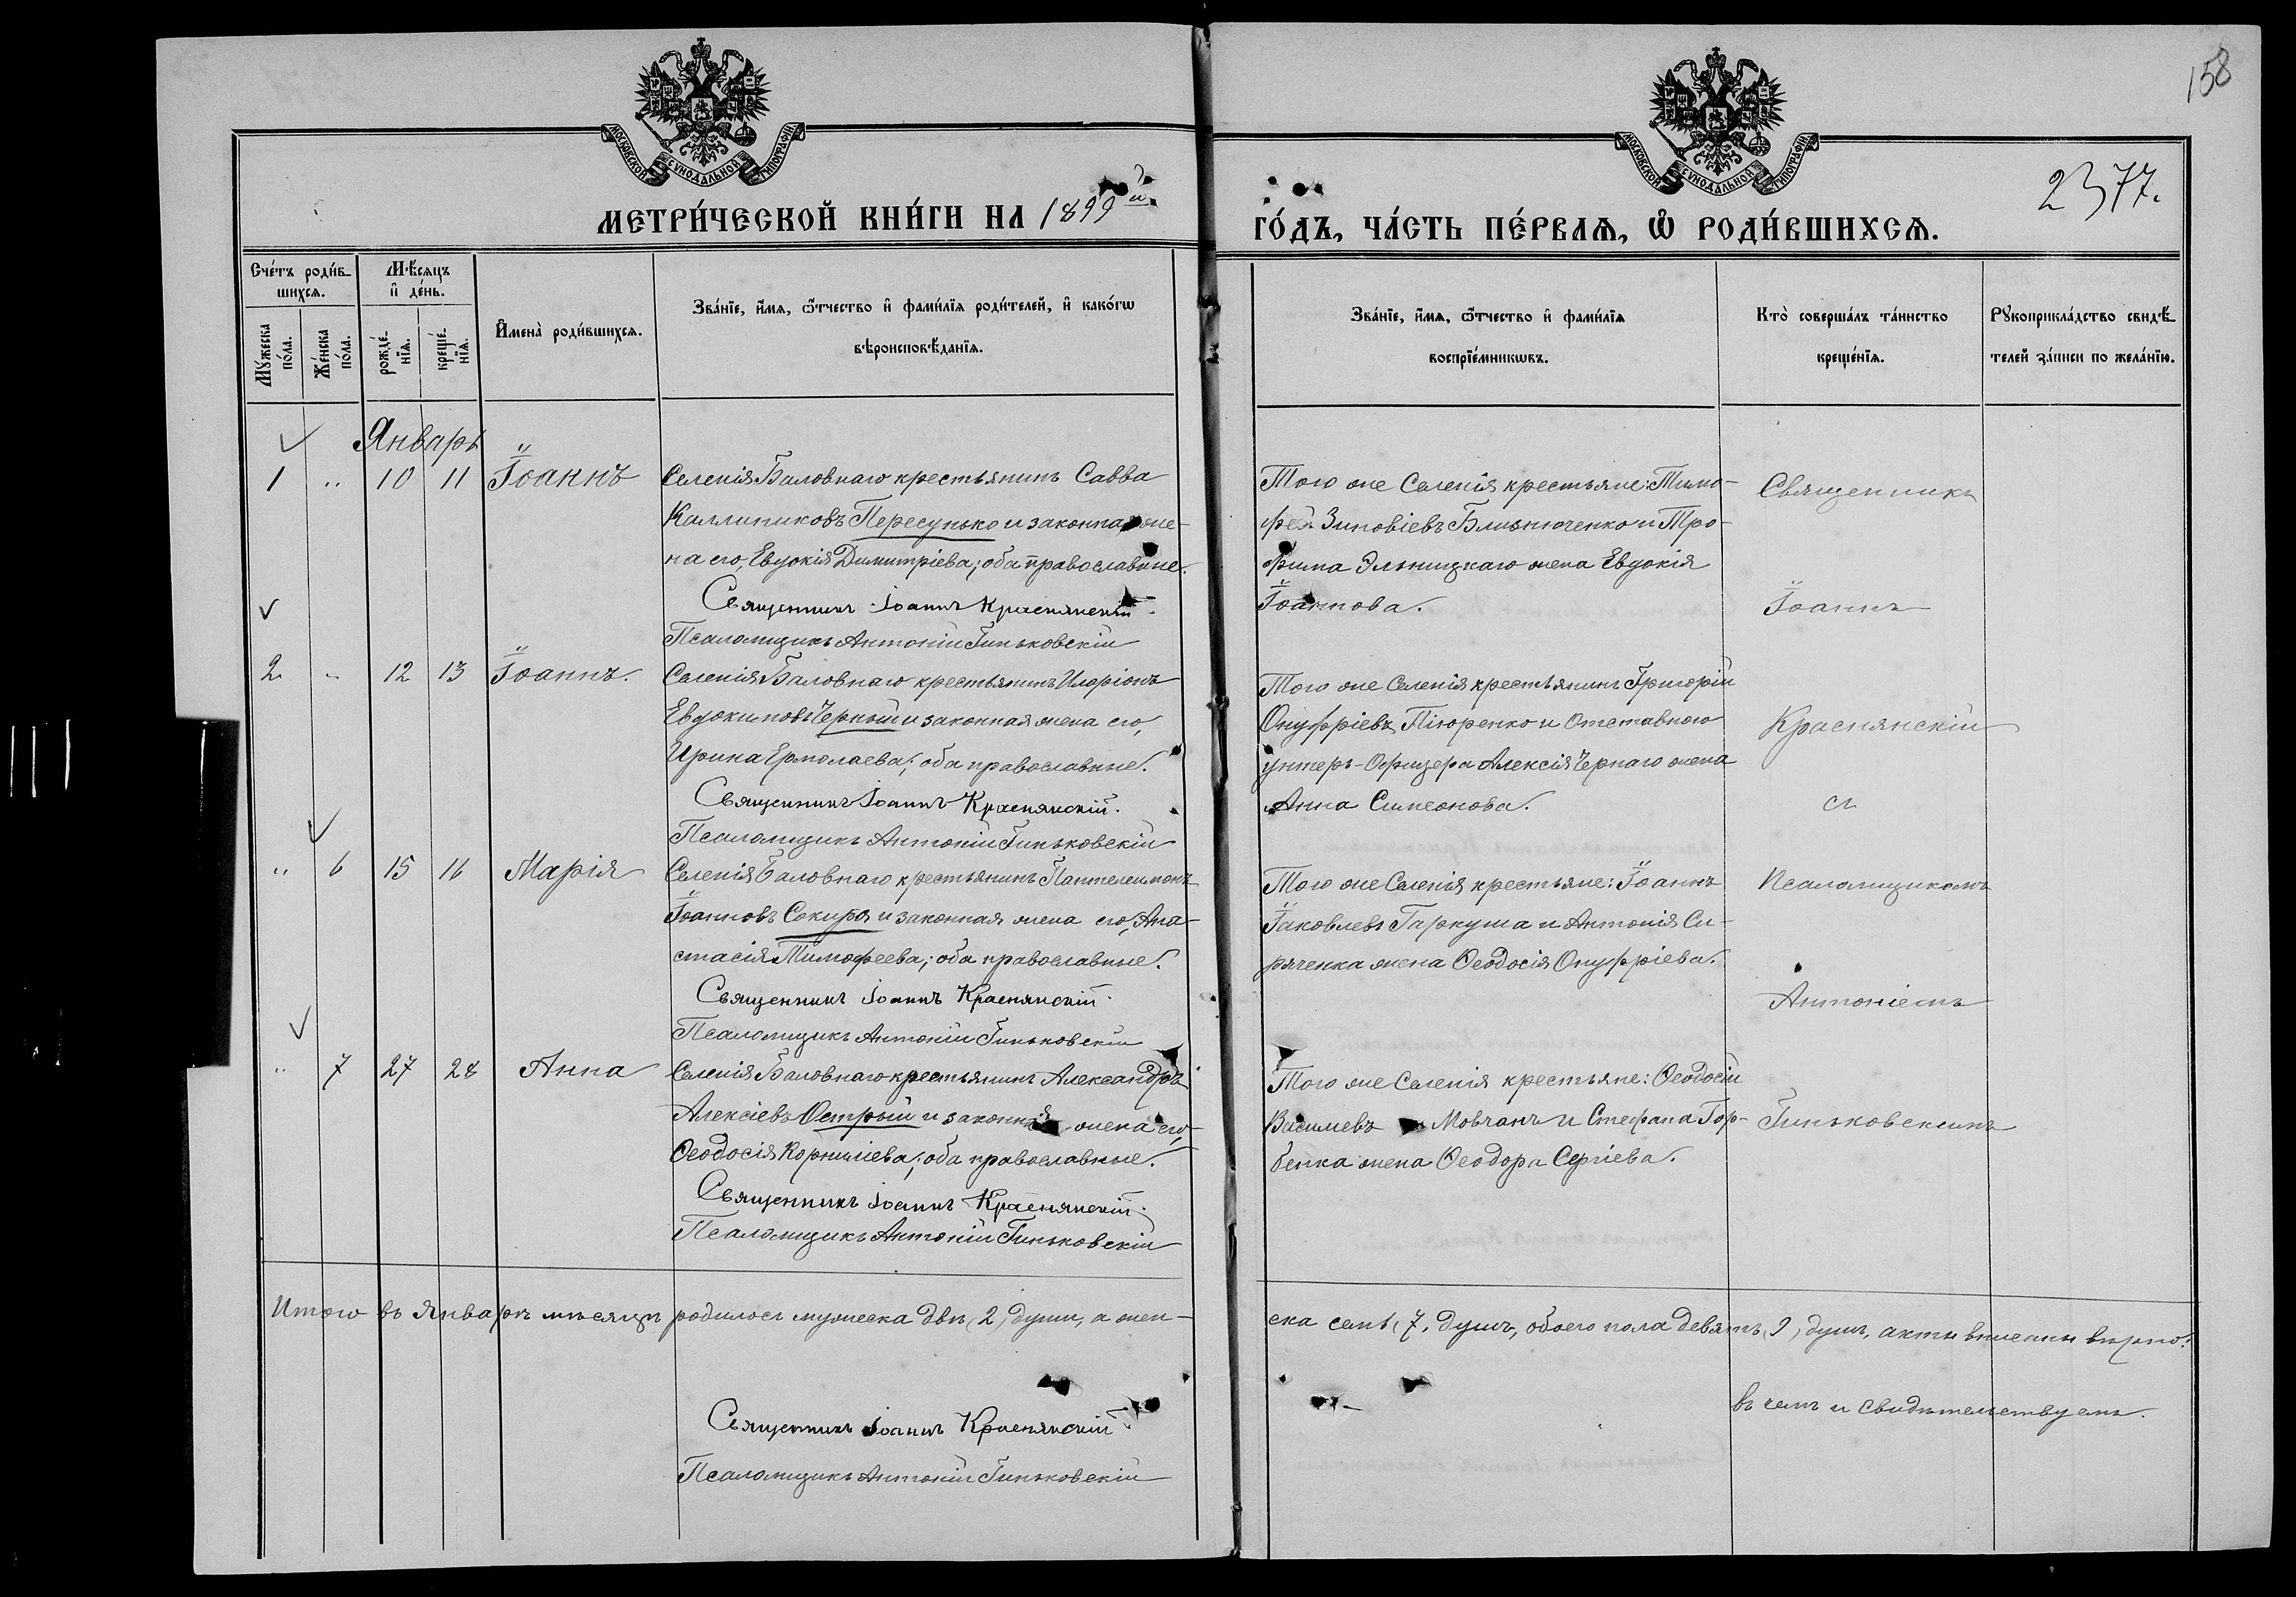 158
МОСКОВСКОЙ СѴНОДАЛЬНОЙ ТИПОГРАФІИ
МОСКОВСКОЙ СѴНОДАЛЬНОЙ ТИПОГРАФІИ
2377.
МЕТРИ́ЧЕСКОЙ КНИ́ГИ НА 1899й
ГО́ДЪ, ЧА́СТЬ ПЕ́РВАѦ, Ѡ҆ РОДИ́ВШИХСѦ.
Сче́тъ роди́в-
шихсѧ.
Мꙋ́жеска по́ла.
Же́нска по́ла.
Мѣ́сѧцъ
и҆ де́нь.
рожде́-нїѧ.
креще́-нїѧ.
И҆мена̀ роди́вшихсѧ.
Зва́нїе, и҆́мѧ, ѻ҆́тчество и҆ фами́лїѧ роди́телей, и҆ како́гѡ
вѣроисповѣ́данїѧ.
Зва́нїе, и҆́мѧ, ѻ҆́тчество и҆ фами́лїѧ
воспрїе́мникѡвъ.
Кто̀ соверша́лъ та́инство
креще́нїѧ.
Рꙋкоприкла́дство свидѣ́-
телей за́писи по жела́нїю.
Январь
1 " 10 11 Іоаннъ
Селенія Баловнаго крестьянинъ Савва
Каллиниковъ Пересунько и законная же-
на его, Евдокія Димитріева; оба православные.
Священникъ Іоаннъ Краснянскій.
Псаломщикъ Антоній Гиньковскій
Того же Селенія крестьяне: Тимо-
фей Зиновіевъ Близнюченко и Тро-
фима Эльницкаго жена Евдокія
Іоаннова.
2 " 12 13 Іоаннъ.
Селенія Баловнаго крестьянинъ Иларіонъ
Евдокимовъ Черный и законная жена его,
Ирина Ермолаева; оба православные.
Священникъ Іоаннъ Краснянскій.
Псаломщикъ Антоній Гиньковскій
Того же Селенія крестьянинъ Григорій
Онуфріевъ Пігоренко и Отставного
унтеръ-Офицера Алексія Чернаго жена
Анна Симеонова.
" 6 15 16 Марія
Селенія Баловнаго крестьянинъ Пантелеимонъ
Іоанновъ Сокира и законная жена его, Ана-
стасія Тимофеева; оба православные.
Священникъ Іоаннъ Краснянскій.
Псаломщикъ Антоній Гиньковскій
Того же Селенія крестьяне: Іоаннъ
Іаковлевъ Гаркуша и Антонія Си-
ряченка жена Ѳеодосія Онуфріева.
" 7 27 28 Анна
Селенія Баловнаго крестьянинъ Александръ
Алексіевъ Острый и законная жена его,
Ѳеодосія Корниліева; оба православные.
Священникъ Іоаннъ Краснянскій.
Псаломщикъ Антоній Гиньковскій
Того же Селенія крестьяне: Ѳеодосій
Василіевъ Мовчанъ и Стефана Гор-
бенка жена Ѳеодора Сергіева.
Священникъ
Іоаннъ
Краснянскій
съ
Псаломщикомъ
Антоніемъ
Гиньковскимъ
Итого въ Январѣ мѣсяцѣ родилось мужеска двѣ (2) души, а жен-
ска семь (7) душъ, обоего пола девять (9) душъ, акты вписаны вѣрно:
въ чемъ и свидѣтельствуемъ.
Священникъ Іоаннъ Краснянскій.
Псаломщикъ Антоній Гиньковскій